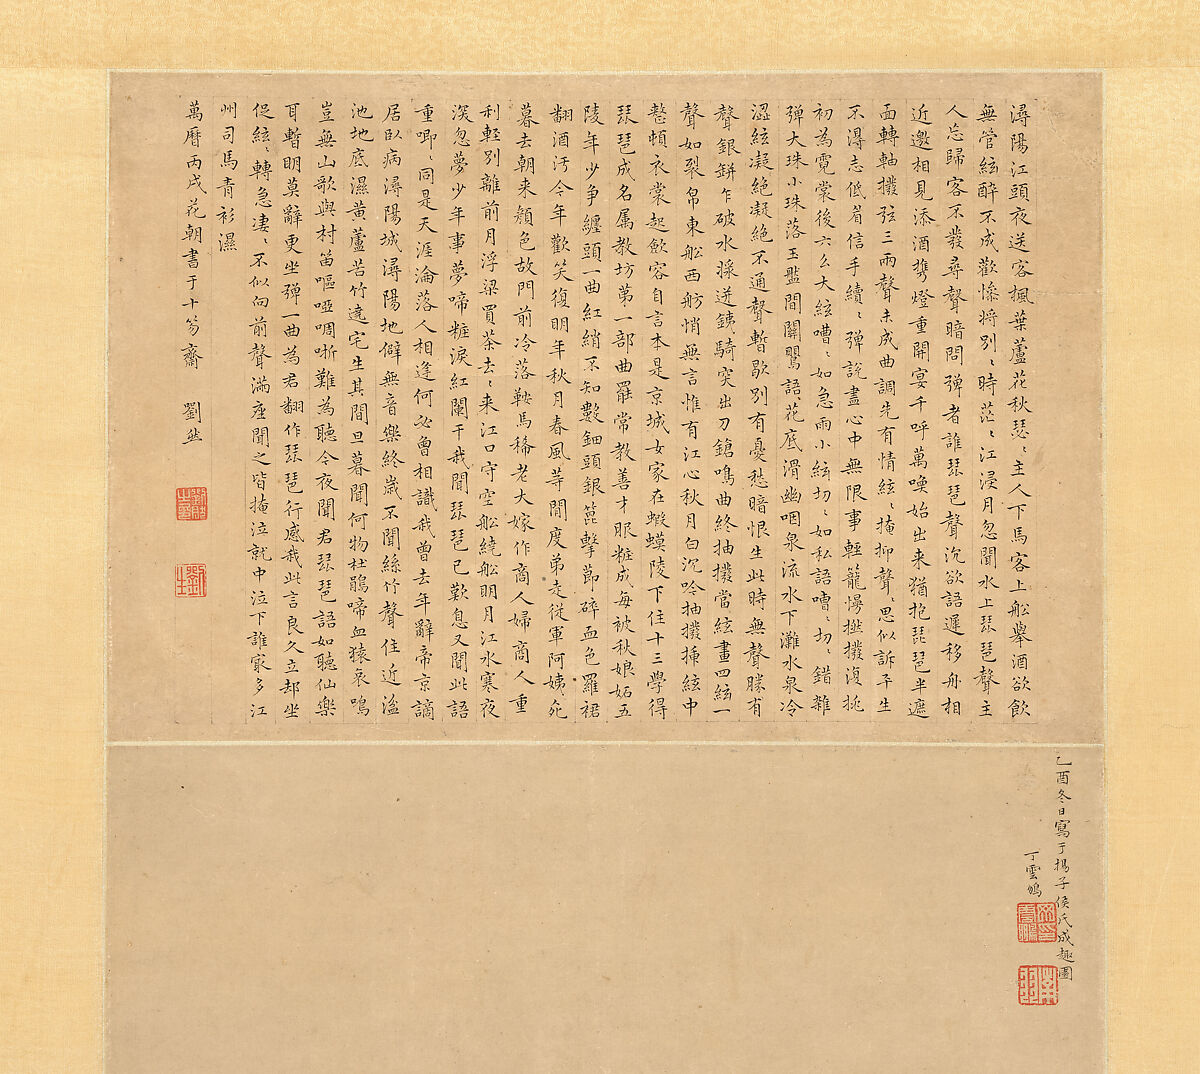 潯陽江頭夜送客楓葉蘆花秋瑟〻主人下馬客上船舉酒欲飲
無管絃醉不成歡慘將別〻時茫〻江浸月忽聞水上琵琶聲主
人忘歸客不發尋聲暗問彈者誰琵琶聲沉欲語遲移舟相
近邀相見添酒携燈重開宴千呼萬喚始出来猶抱琵琶半遮
面轉軸撥弦三兩聲未成曲調先有情絃〻掩抑聲〻思似訴平生
不得志低眉信手續〻彈說盡心中無限事輕籠慢撚撥復挑
初為霓裳後六么大絃嘈〻如急雨小絃切〻如私語嘈〻切〻錯雜
彈大珠小珠落玉盤間關鶯語花底滑幽咽泉流水下灘水泉冷
澀絃凝絕凝絕不通聲暫歇別有憂愁暗恨生此時無聲勝有
聲銀缾乍破水漿迸鐵騎突出刀鎗鳴曲終抽撥當絃畫四絃一
聲如裂帛東船西舫悄無言惟有江心秋月白沉吟抽撥揷絃中
整頓衣裳起斂容自言本是京城女家在蝦蟆陵下住十三學得
琵琶成名属教坊第一部曲罷常教善才服粧成每被秋娘妬五
陵年少爭纏頭一曲紅綃不知數鈿頭銀篦擊節碎血色羅裙
翻酒汚今年歡笑復明年秋月春風等閒度弟走從軍阿姨死
暮去朝来顏色故門前冷落鞍馬稀老大嫁作商人婦商人重
利輕別離前月浮梁買茶去〻来江口守空船繞船明月江水寒夜
深忽夢少年事夢啼粧淚紅闌干我聞琵琶已歎息又聞此語
重唧〻同是天涯淪落人相逢何必曾相識我曾去年辭帝京謫
居臥病潯陽城潯陽地僻無音樂終歲不聞絲竹聲住近湓
池地底濕黃蘆苦竹遶宅生其間旦暮聞何物杜鵑啼血猿哀鳴
豈無山歌與村笛嘔啞啁哳難為聽今夜聞君琵琶語如聽仙樂
耳暫明莫辭更坐彈一曲為君翻作琵琶行感我此言良久立却坐
促絃〻轉急淒〻不似向前聲滿座聞之皆掩泣就中泣下誰最多江
州司馬青衫濕
萬曆丙戌花朝書于十笏齋 劉然
乙酉冬日寫于楊子侯氏成趣園
丁雲鵬